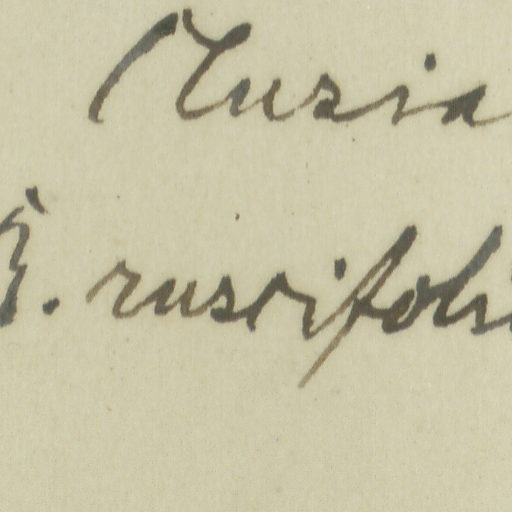 Clusia
B. ruscifoli